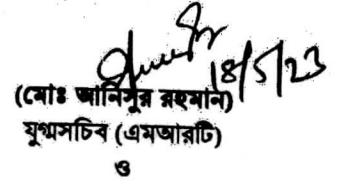 18/5/23
(মোঃ আনিসুর রহমান)
যুগ্মসচিব (এমআরটি)
ও